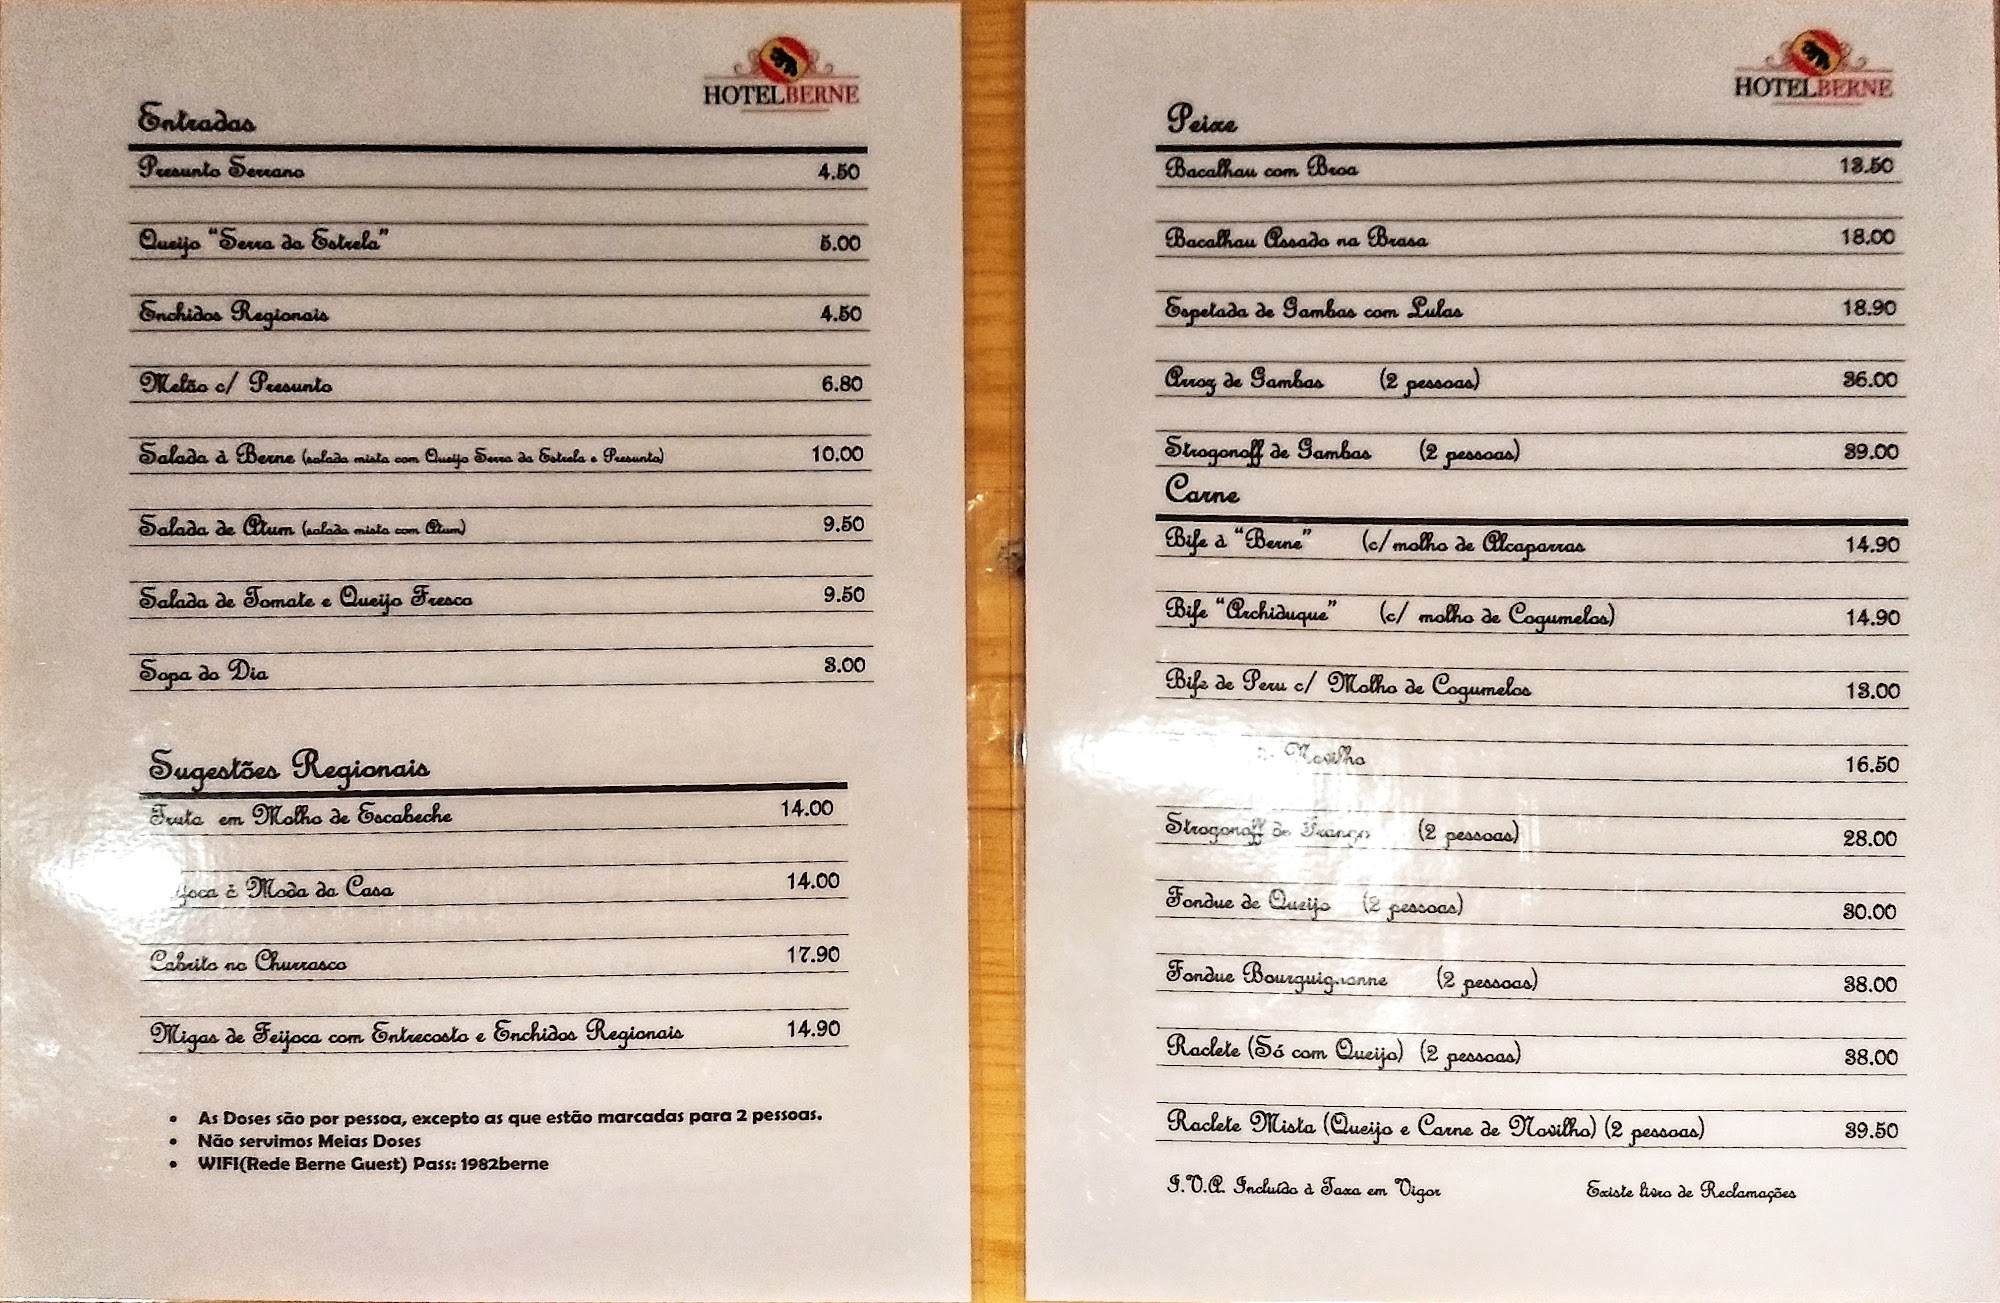 HOTELBERNE
Entradas
Presunto Serrano 4.50
Queijo "Serra da Estrela" 5.00
Enchidos Regionais 4.50
Melão c/ Presunto 6.80
Salada à Berne (salada mista com Queijo Serra da Estrela e Presunto) 10.00
Salada de Atum (salada mista com Atum) 9.50
Salada de Tomate e Queijo Fresco 9.50
Sopa do Dia 3.00
Sugestões Regionais
Truta em Molho de Escabeche 14.00
à Moda da Casa 14.00
Cabrito no Churrasco 17.90
Migas de Feijoca com Entrecosto e Enchidos Regionais 14.90
• As Doses são por pessoa, excepto as que estão marcadas para 2 pessoas.
• Não servimos Meias Doses
• WIFI(Rede Berne Guest) Pass: 1982berne
HOTELBERNE
Peixe
Bacalhau com Broa 13.50
Bacalhau Assado na Brasa 18.00
Espetada de Gambas com Lulas 18.90
Arroz de Gambas (2 pessoas) 36.00
Strogonoff de Gambas (2 pessoas) 39.00
Carne
Bife à "Berne" (c/ molho de Alcaparras 14.90
Bife "Archiduque" (c/ molho de Cogumelos) 14.90
Bife de Peru c/ Molho de Cogumelos 13.00
de Novilho 16.50
Strogonoff de Frango (2 pessoas) 28.00
Fondue de Queijo (2 pessoas) 30.00
Fondue Bourguignonne (2 pessoas) 38.00
Raclete (Só com Queijo) (2 pessoas) 38.00
Raclete Mista (Queijo e Carne de Novilho) (2 pessoas) 39.50
I.V.A. Incluído à Taxa em Vigor Existe livro de Reclamações